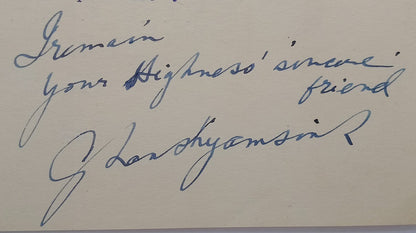 I remain
Your Highness' sincere
friend
Ghanshyamsinh